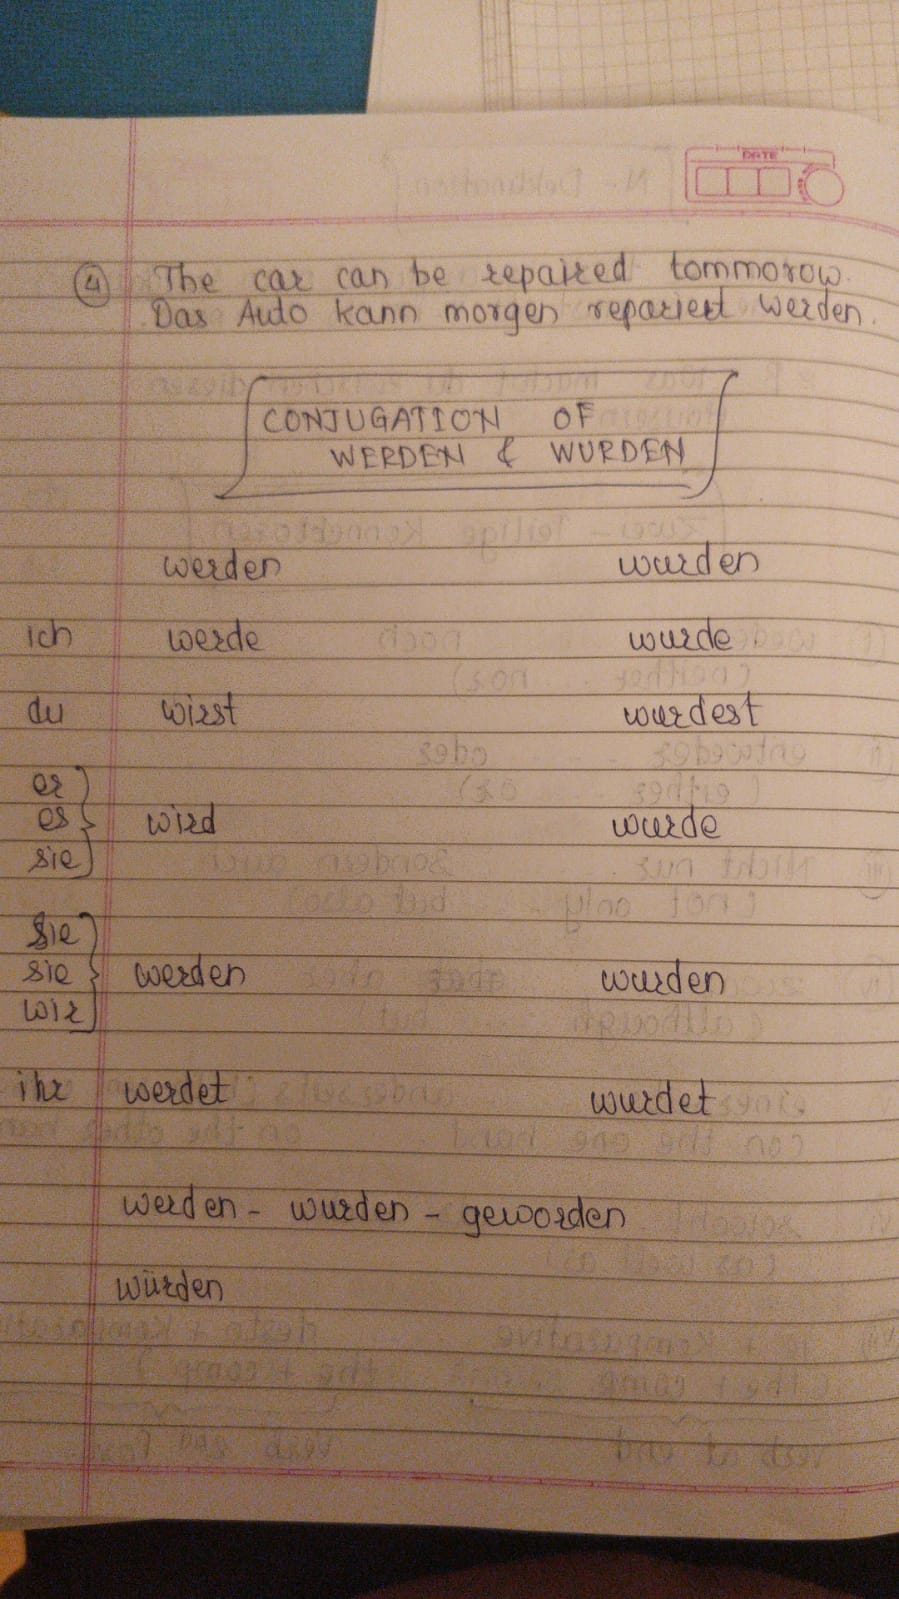 DATE
④ The car can be repaired tommorow.
Das Auto kann morgen repariert werden.
CONJUGATION OF
WERDEN & WURDEN
werden wurden
ich werde wurde
du wirst wurdest
er
es wird wurde
sie
Sie
sie werden wurden
wir
ihr werdet wurdet
werden - wurden - geworden
würden